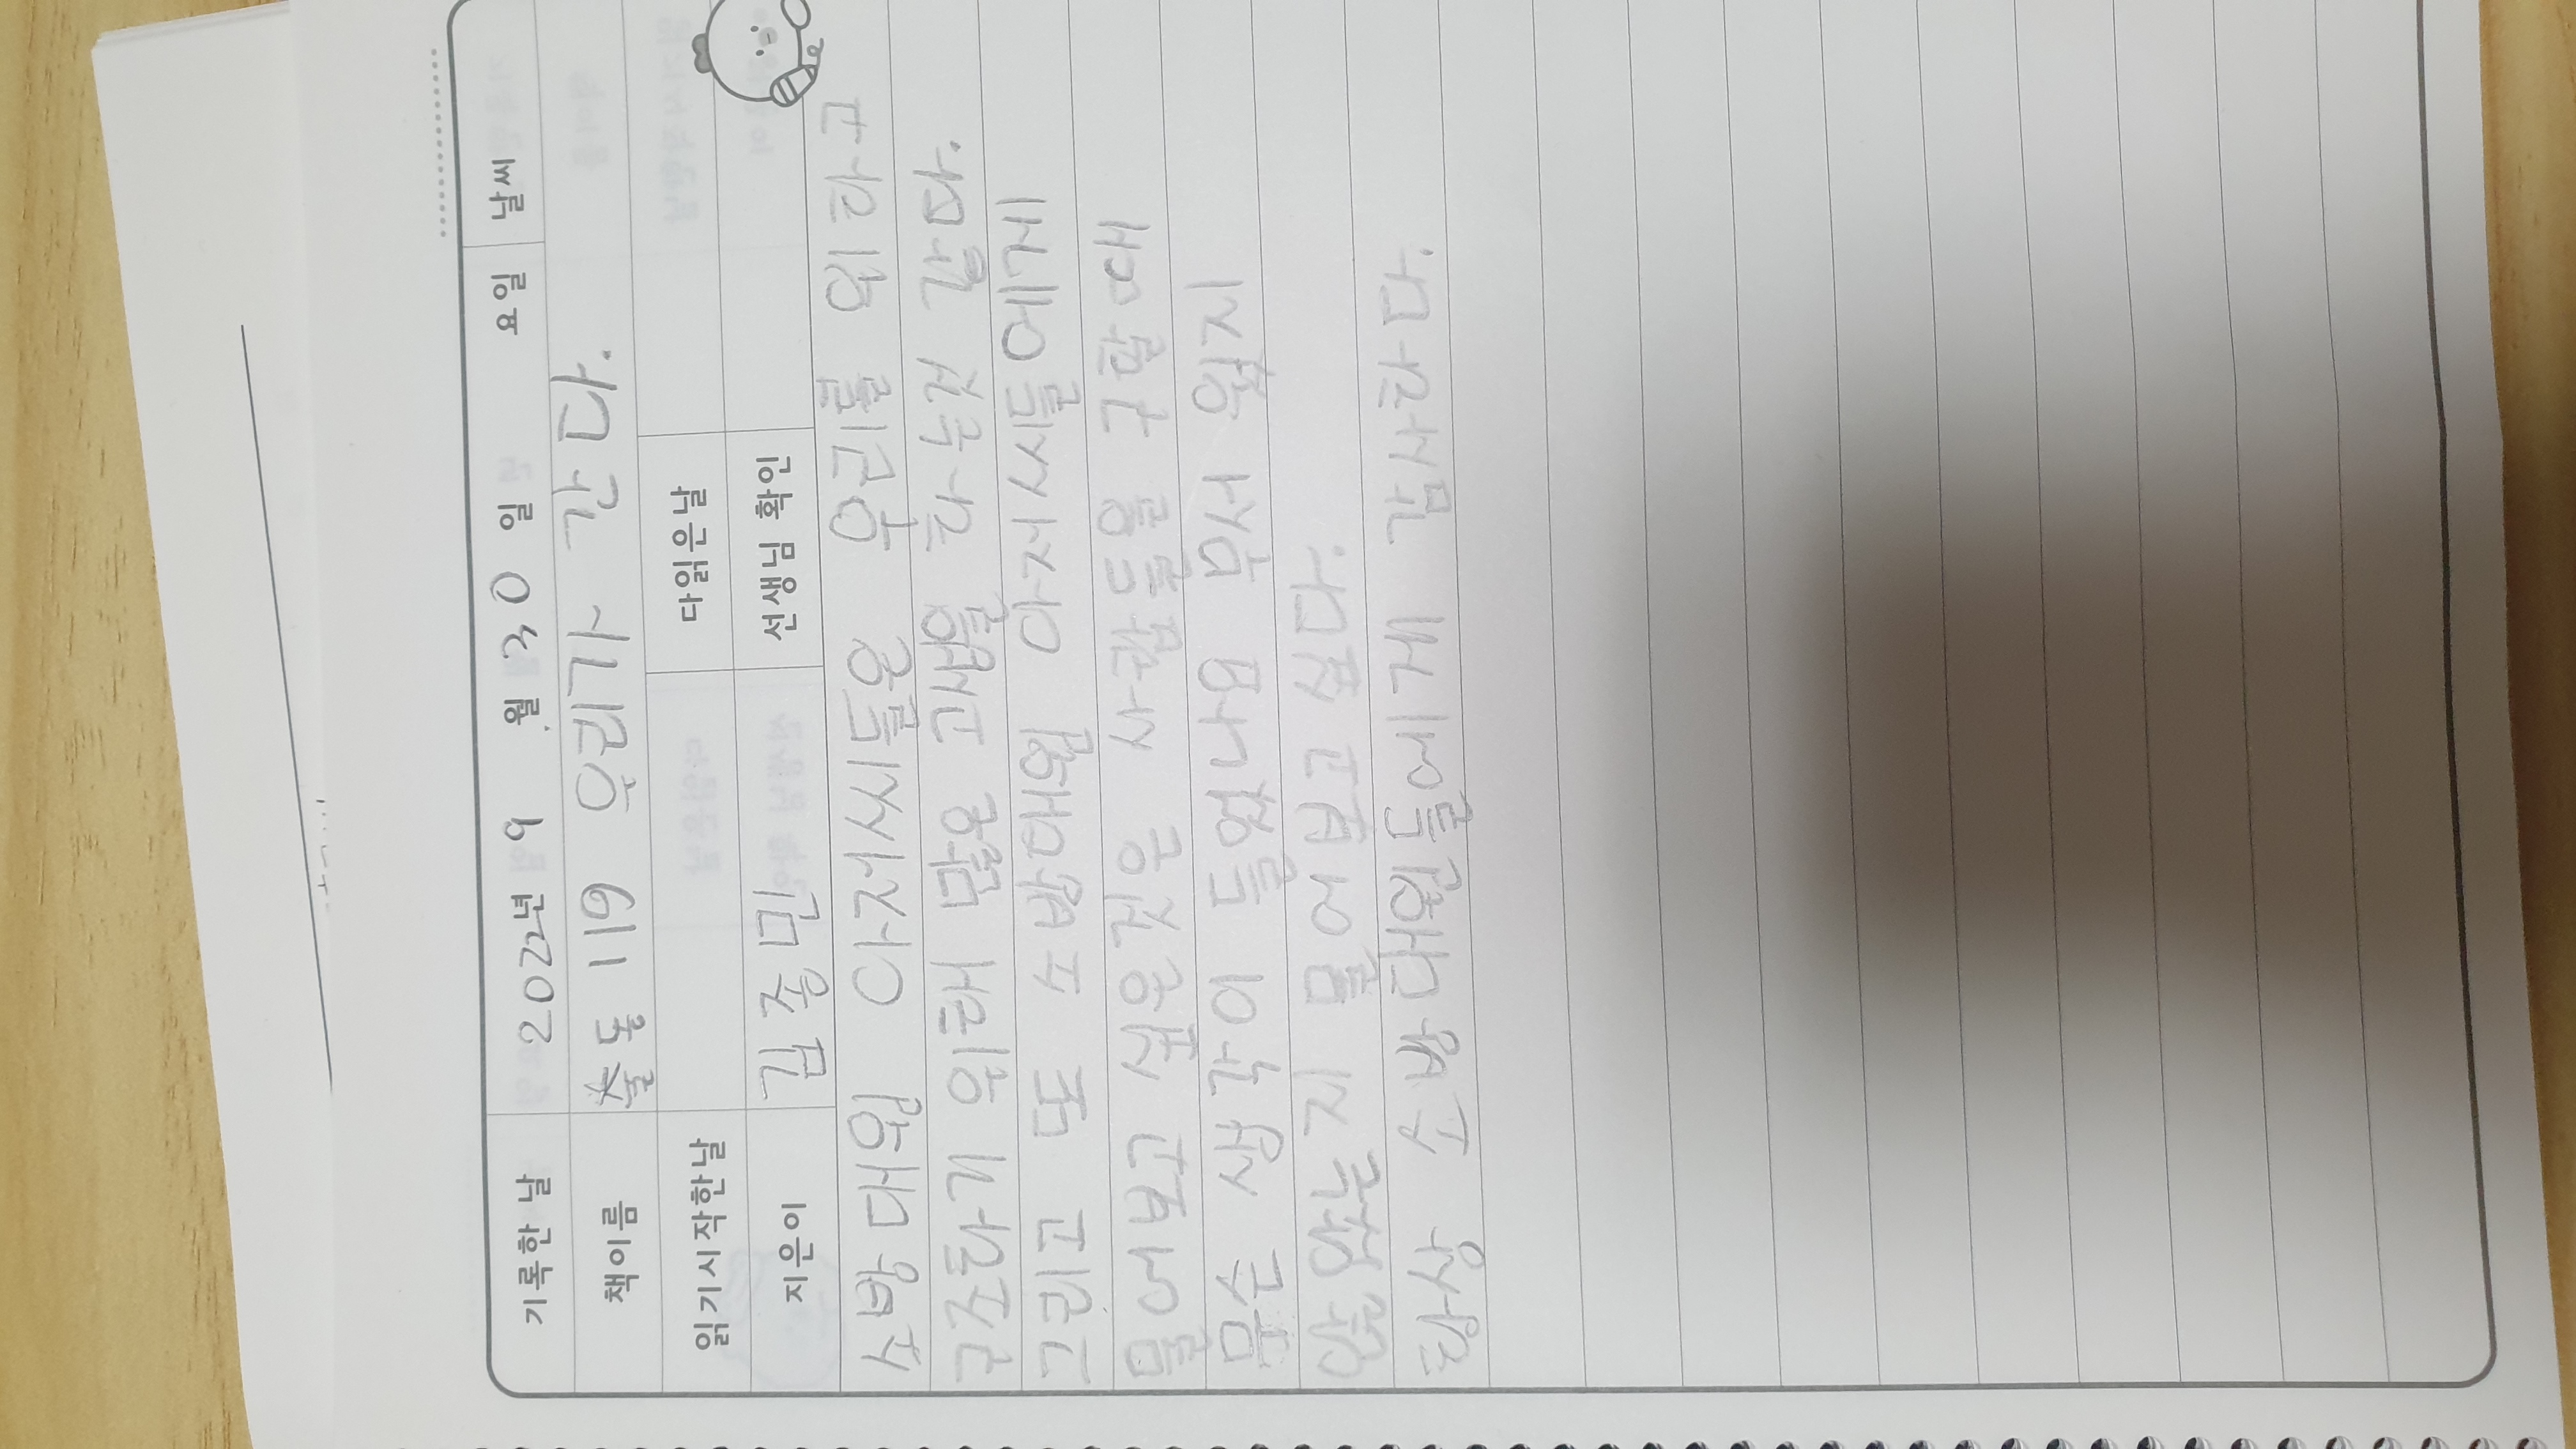 기록한 날 2022년 9 월 30 일 요일 날씨
책이름 출동 119 우리가 간다.
읽기시작한날 다읽은날
지은이 김종민 선생님 확인
소방대원 아저씨들은 우리를 위하고
구조하기 위해 많은 고생을 하는것 같다.
그리고 또 소방대원 아저씨들에게
물어보고 싶은것은 사람들을 구할때
무슨 생각이 들었나요 무서 웠지
않았는지 물어보고싶다.
항상 소방대원들에게 감사하다.